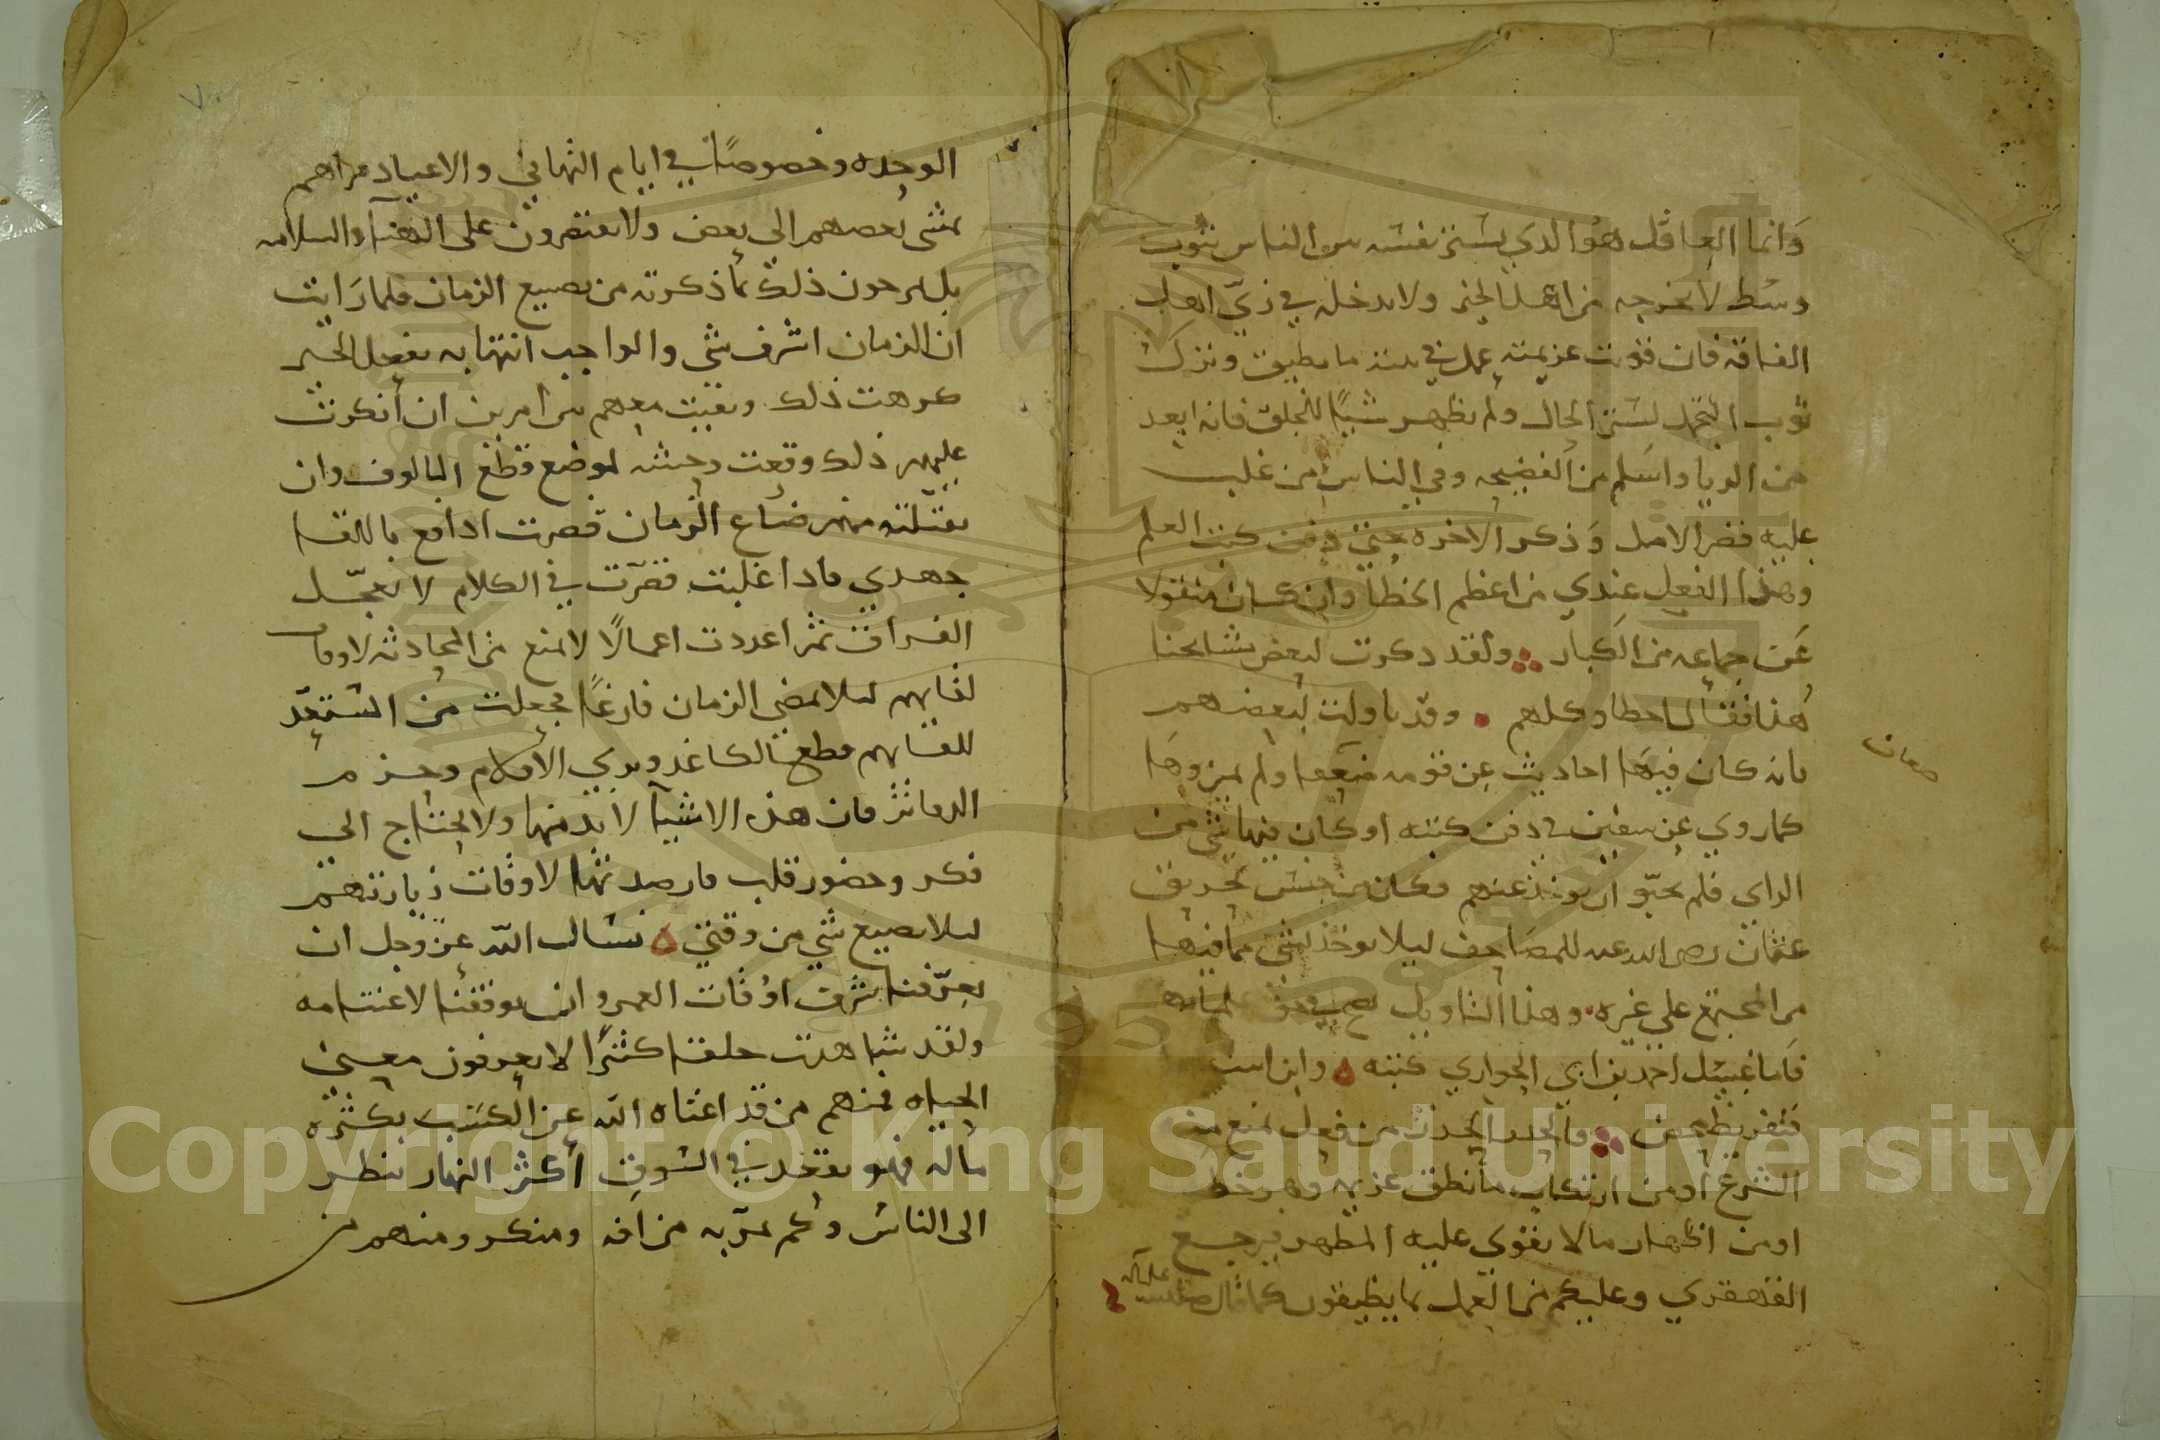 وانما العاقل هو الذي يستر نفسه بين الناس بثوب
وسط لا يخرجه من اهل الخير ولا يدخله في زي اهل
الفاقه فان قويت عزيمته عمل في بيته ما يطيق وترك
ثوب التجمل لستر الحال ولم يظهر شيا للخلق فانه ابعد
من الريا واسلم من الفضيحه وفي الناس من غلب
عليه قصر الامل وذكر الاخره حتى دفن كتب العلم
وهذا الفعل عندي من اعظم الخطا وان كان منقولا
عن جماعه من الكبار ولقد ذكرت لبعض مشايخنا
هذا فقال اخطاوا كلهم وقد تاولت لبعضهم
بانه كان فيها احاديث عن قوم ضعفا ولم يميزوها
كما روي عن سفين في دفن كتبه او كان فيها شي من
الراي فلم يحبوا ان يوخذ عنهم فكان من جنس تحريق
عثمان رضي الله عنه للمصاحف ليلا يوخذ بشي مما فيها
من المجتمع على غيره وهذا التاويل يصح في حق علمايهم
فاما غسل احمد بن ابي الحواري كتبه وابن اسباط
فتفريط محض فالحذر الحذر من فعل يمنع منه
الشرع او من ارتكاب ما يظن عزيمه وهو خطا
او من اظهار ما لا يقوى عليه المظهر فيرجع
القهقرى وعليكم من العمل بما تطيقون كما قال صلى الله عليه
٧
الوحده وخصوصا في ايام التهاني والاعياد فتراهم
يمشي بعضهم الى بعض ولا يقتصرون على الهنا والسلام
بل يمزحون ذلك بما ذكرته من تضييع الزمان فلما رايت
ان الزمان اشرف شي والواجب انتهابه بفعل الخير
كرهت ذلك وبقيت معهم بين امرين ان انكرت
عليهم ذلك وقعت وحشه لموضع قطع المالوف وان
تقبلته منهم ضاع الزمان فصرت ادافع باللقا
جهدي فاذا غلبت قصرت في الكلام لاتعجل
الفراق ثم اعددت اعمالا لا تمنع من المحادثه لاوقات
لقايهم ليلا يمضي الزمان فارغا فجعلت من المستعد
للقايهم قطع الكاغد وبري الاقلام وحزم
الدفاتر فان هذه الاشيا لا بد منها ولا تحتاج الى
فكر وحضور قلب فارصدتها لاوقات زيارتهم
ليلا يضيع شي من وقتي نسال الله عز وجل ان
يعرفنا شرف اوقات العمر وان يوفقنا لاغتنامه
ولقد شاهدت خلقا كثيرا لا يعرفون معنى
الحياه فمنهم من قد اغناه الله عن الكسب بكثره
ماله فهو يقعد في السوق اكثر النهار ينظر
الى الناس وكم تمر به من افه ومنكر ومنهم من
Copyright © King Saud University